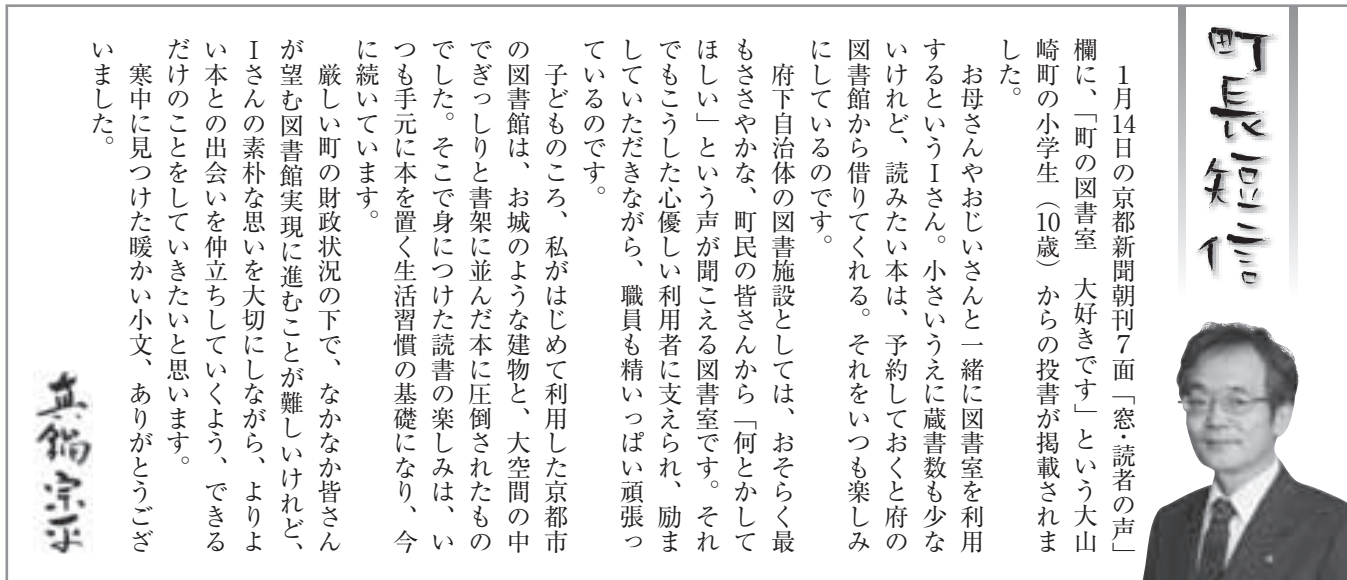 町長短信
　1月14日の京都新聞朝刊7面「窓・読者の声」
欄に、「町の図書室　大好きです」という大山
崎町の小学生（10歳）からの投書が掲載されま
した。
　お母さんやおじいさんと一緒に図書室を利用
するというIさん。小さいうえに蔵書数も少な
いけれど、読みたい本は、予約しておくと府の
図書館から借りてくれる。それをいつも楽しみ
にしているのです。
　府下自治体の図書施設としては、おそらく最
もささやかな、町民の皆さんから「何とかして
ほしい」という声が聞こえる図書室です。それ
でもこうした心優しい利用者に支えられ、励ま
していただきながら、職員も精いっぱい頑張っ
ているのです。
　子どものころ、私がはじめて利用した京都市
の図書館は、お城のような建物と、大空間の中
でぎっしりと書架に並んだ本に圧倒されたもの
でした。そこで身につけた読書の楽しみは、い
つも手元に本を置く生活習慣の基礎になり、今
に続いています。
　厳しい町の財政状況の下で、なかなか皆さん
が望む図書館実現に進むことが難しいけれど、
Iさんの素朴な思いを大切にしながら、よりよ
い本との出会いを仲立ちしていくよう、できる
だけのことをしていきたいと思います。
　寒中に見つけた暖かい小文、ありがとうござ
いました。
真鍋宗平